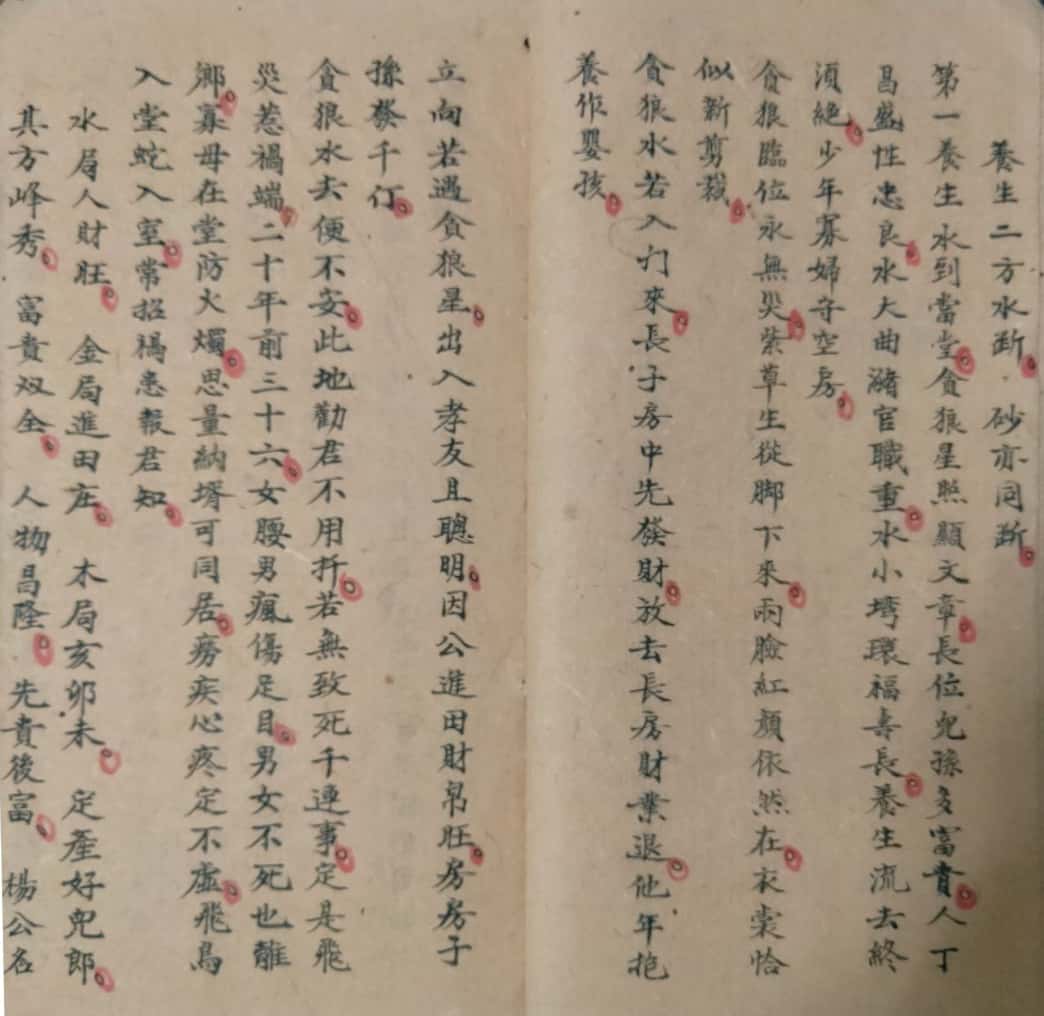 養生二方水断 砂亦同断
第一養生水到當堂貪狼星照顯文章長位兒孫多富貴人丁
昌盛性忠良水大曲潴官職重水小塆環福壽長養生流去終
須絶少年寡婦守空房
貪狼臨位永無災紫草生從脚下來兩臉紅顏依然在衣裳恰
似新剪裁
貪狼水若入门來長子房中先發財放去長房財業退他年抱
養作嬰孩
立向若遇貪狼星出入孝友且聰明因公進田財帛旺房房子
孫發千仃
貪狼水去便不安此地勸君不用扦若無致死千連事定是飛
災惹禍端二十年前三十六女腰男瘋傷足目男女不死也離
鄉寡母在堂防火燭思量納壻可同居癆疾心疼定不虛飛鳥
入堂蛇入室常招禍患報君知
水局人財旺 金局進田庄 木局亥卯未 定產好兒郎
其方峰秀 富貴双全 人物昌隆 先貴後富 楊公名